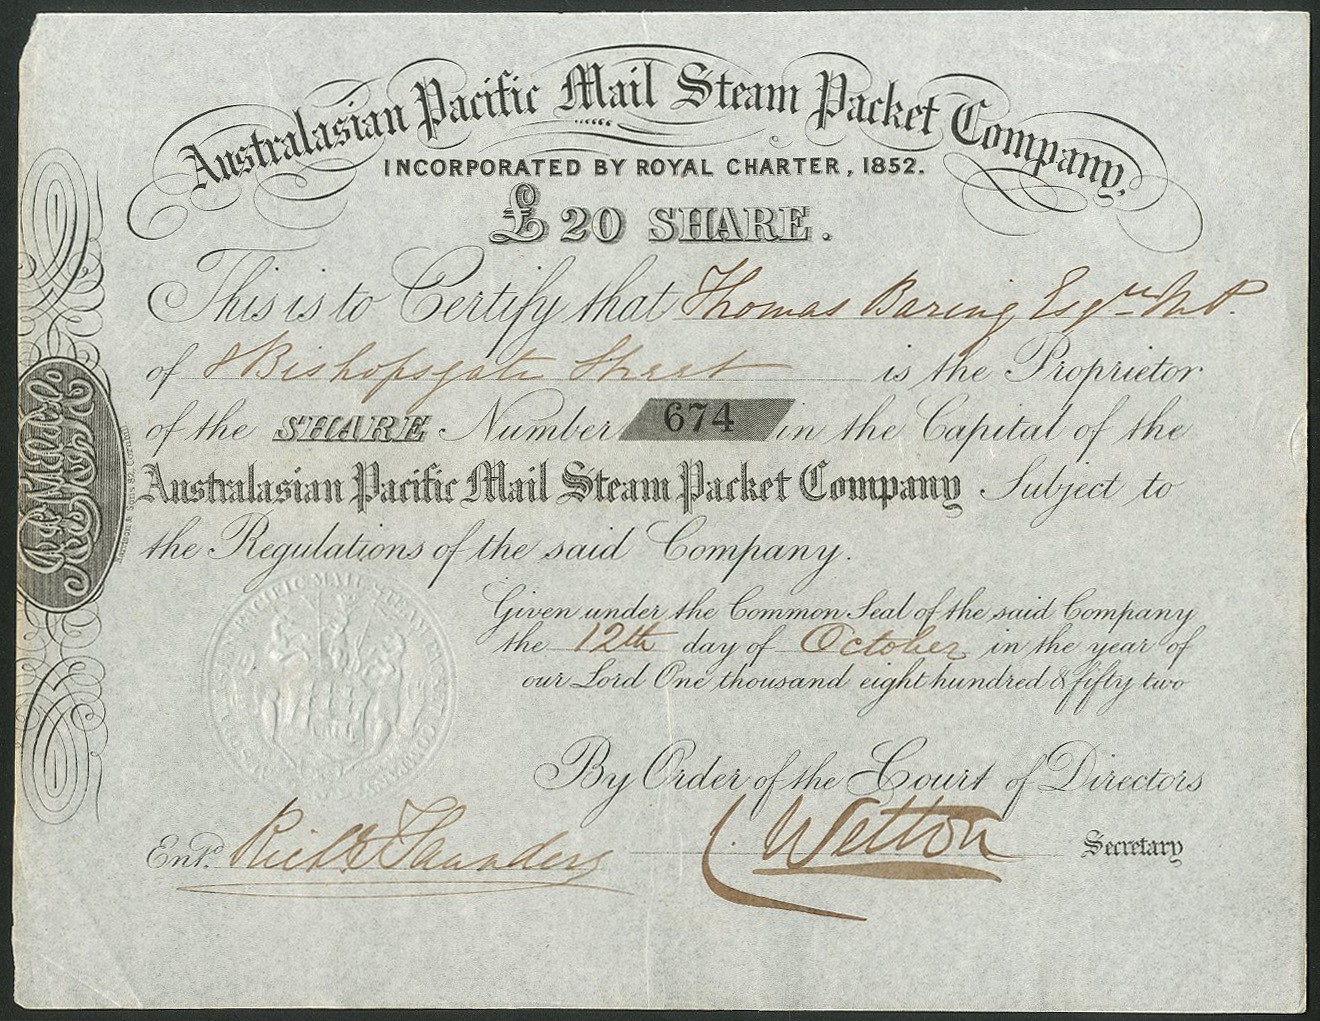 Australasian Pacific Mail Steam Packet Company,
INCORPORATED BY ROYAL CHARTER, 1852.
£20 SHARE.
This is to Certify that Thomas Baring Esqre M.P.
of 8 Bishopsgate Street is the Proprietor
of the SHARE Number 674 in the Capital of the
Australasian Pacific Mail Steam Packet Company Subject to
the Regulations of the said Company.
Given under the Common Seal of the said Company
the 12th day of October in the year of
our Lord One thousand eight hundred & fifty two
By Order of the Court of Directors
Entd. Richd Saunders C. Wetton Secretary
PACIFIC MAIL STEAM PACKET COMPANY
& Sons, 82, Cornhill